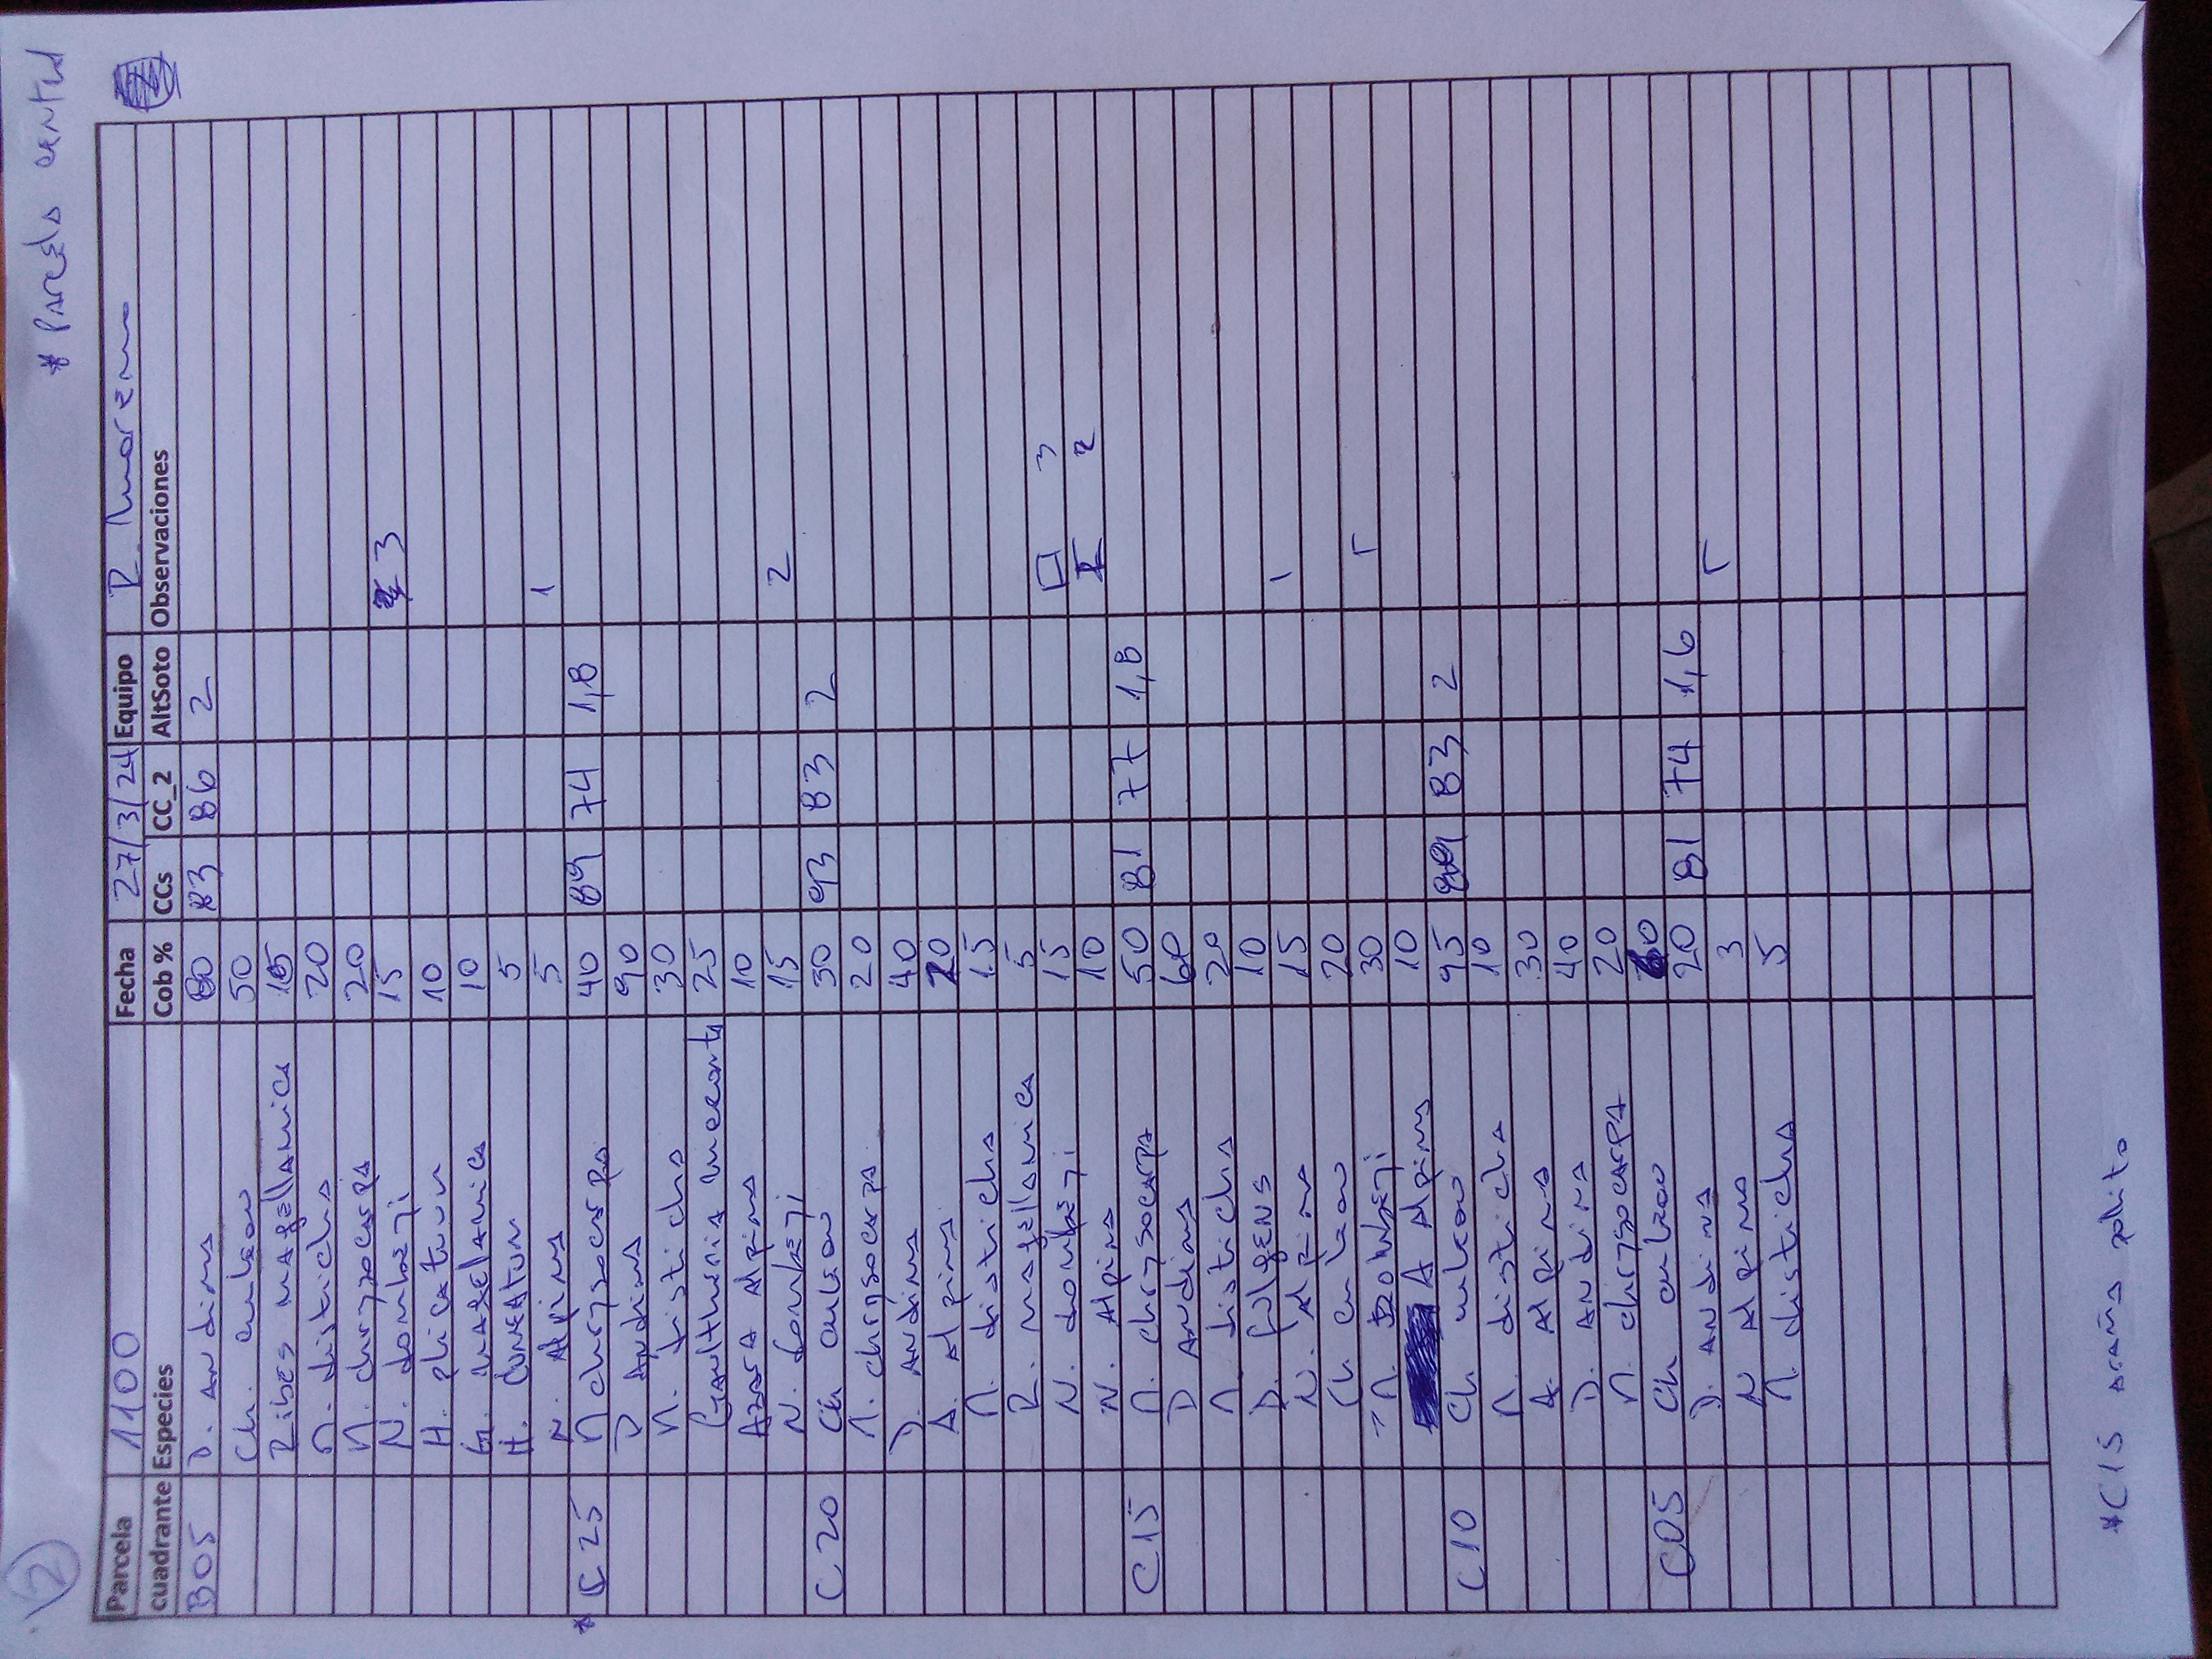 2
* Parcela central
Parcela 1100 Fecha 27/3/24 Equipo P. Moreno
cuadrante Especies Cob % CCs CC_2 AltSoto Observaciones
B05 D. Andina 80 83 86 2
Ch. culeou 50
Ribes magellanica 15
M. disticha 20
M. chrysocarpa 20
N. dombeyi 15 3
H. plicatum 10
G. magelanica 10
H. cuneatum 5
N. Alpina 5 1
* C25 M chrysocarpa 40 89 74 1,8
D Andina 90
M. disticha 30
Gaultheria mucronata 25
Azara Alpina 10
N. dombeyi 15 2
C20 Ch culeou 30 93 83 2
M. chrysocarpa 20
D. Andina 40
A. Alpina 20
M disticha 15
R. magellanica 5
N. dombeyi 15 3
N. Alpina 10 2
C15 M. chrysocarpa 50 81 77 1,8
D Andina 60
M. disticha 20
D. fulgens 10
N. Alpina 15 1
Ch culeou 20
N. Dombeyi 30
A Alpina 10
C10 Ch culeou 95 83 2
M disticha 10
A. Alpina 30
D. Andina 40
M chrysocarpa 20
C05 Ch culeou 20 81 74 1,6
D. Andina
N Alpina 3
M. disticha 5
*C15 araña pollito